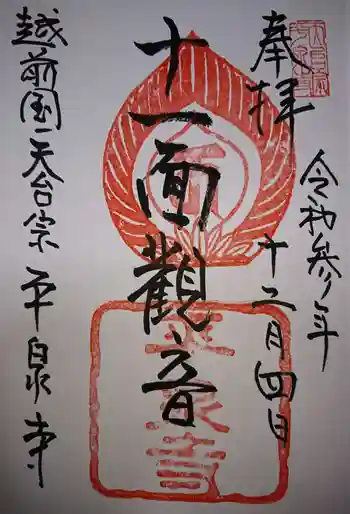 奉拝
令和参年
十二月四日
十一面觀音
越前国 天台宗 平泉寺
平泉寺